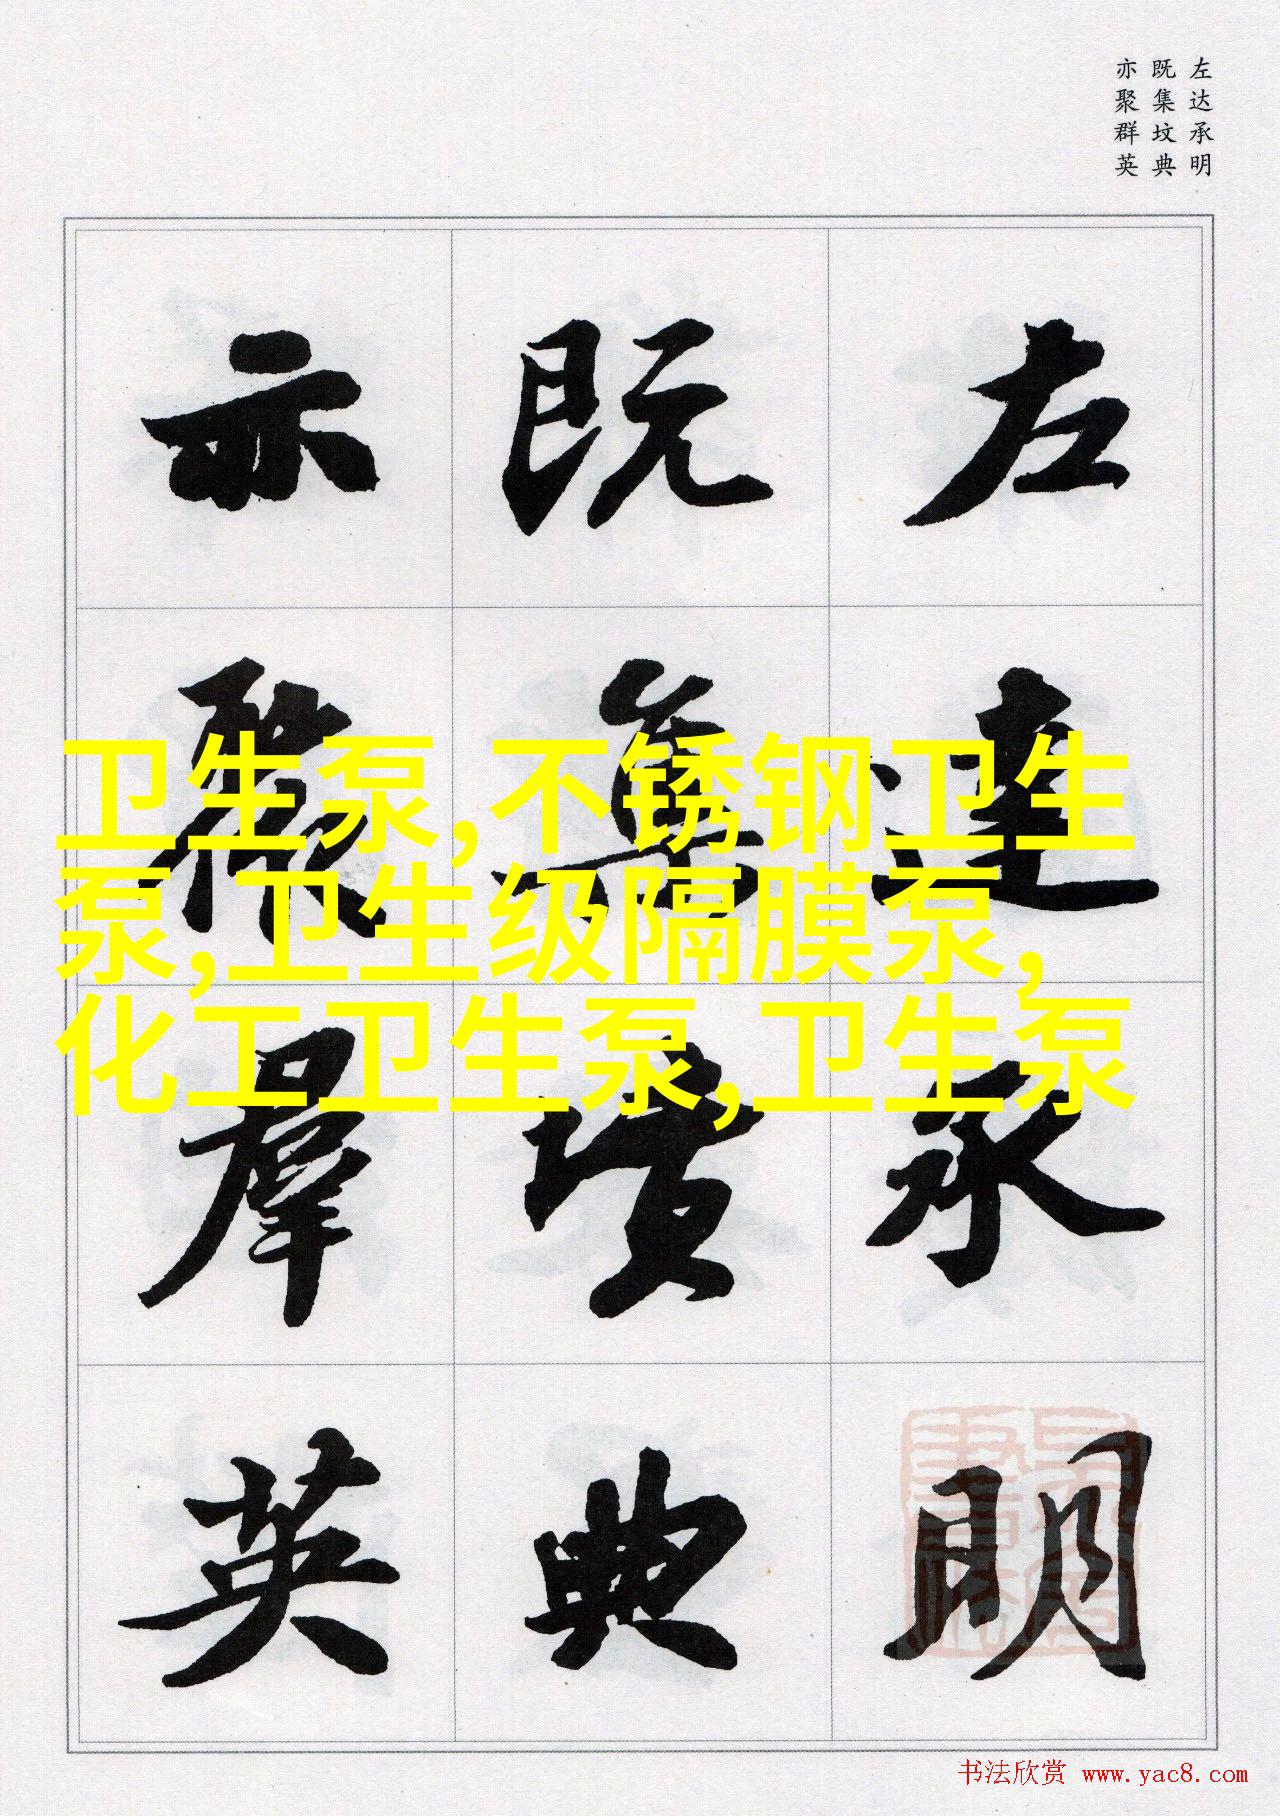 左达承明
既集坟典
亦聚群英
左達承明
既集墳典
亦聚群英
卫生泵,不锈钢卫生
泵,卫生级隔膜泵,
化工卫生泵,卫生泵
书法欣赏 www.yac8.com